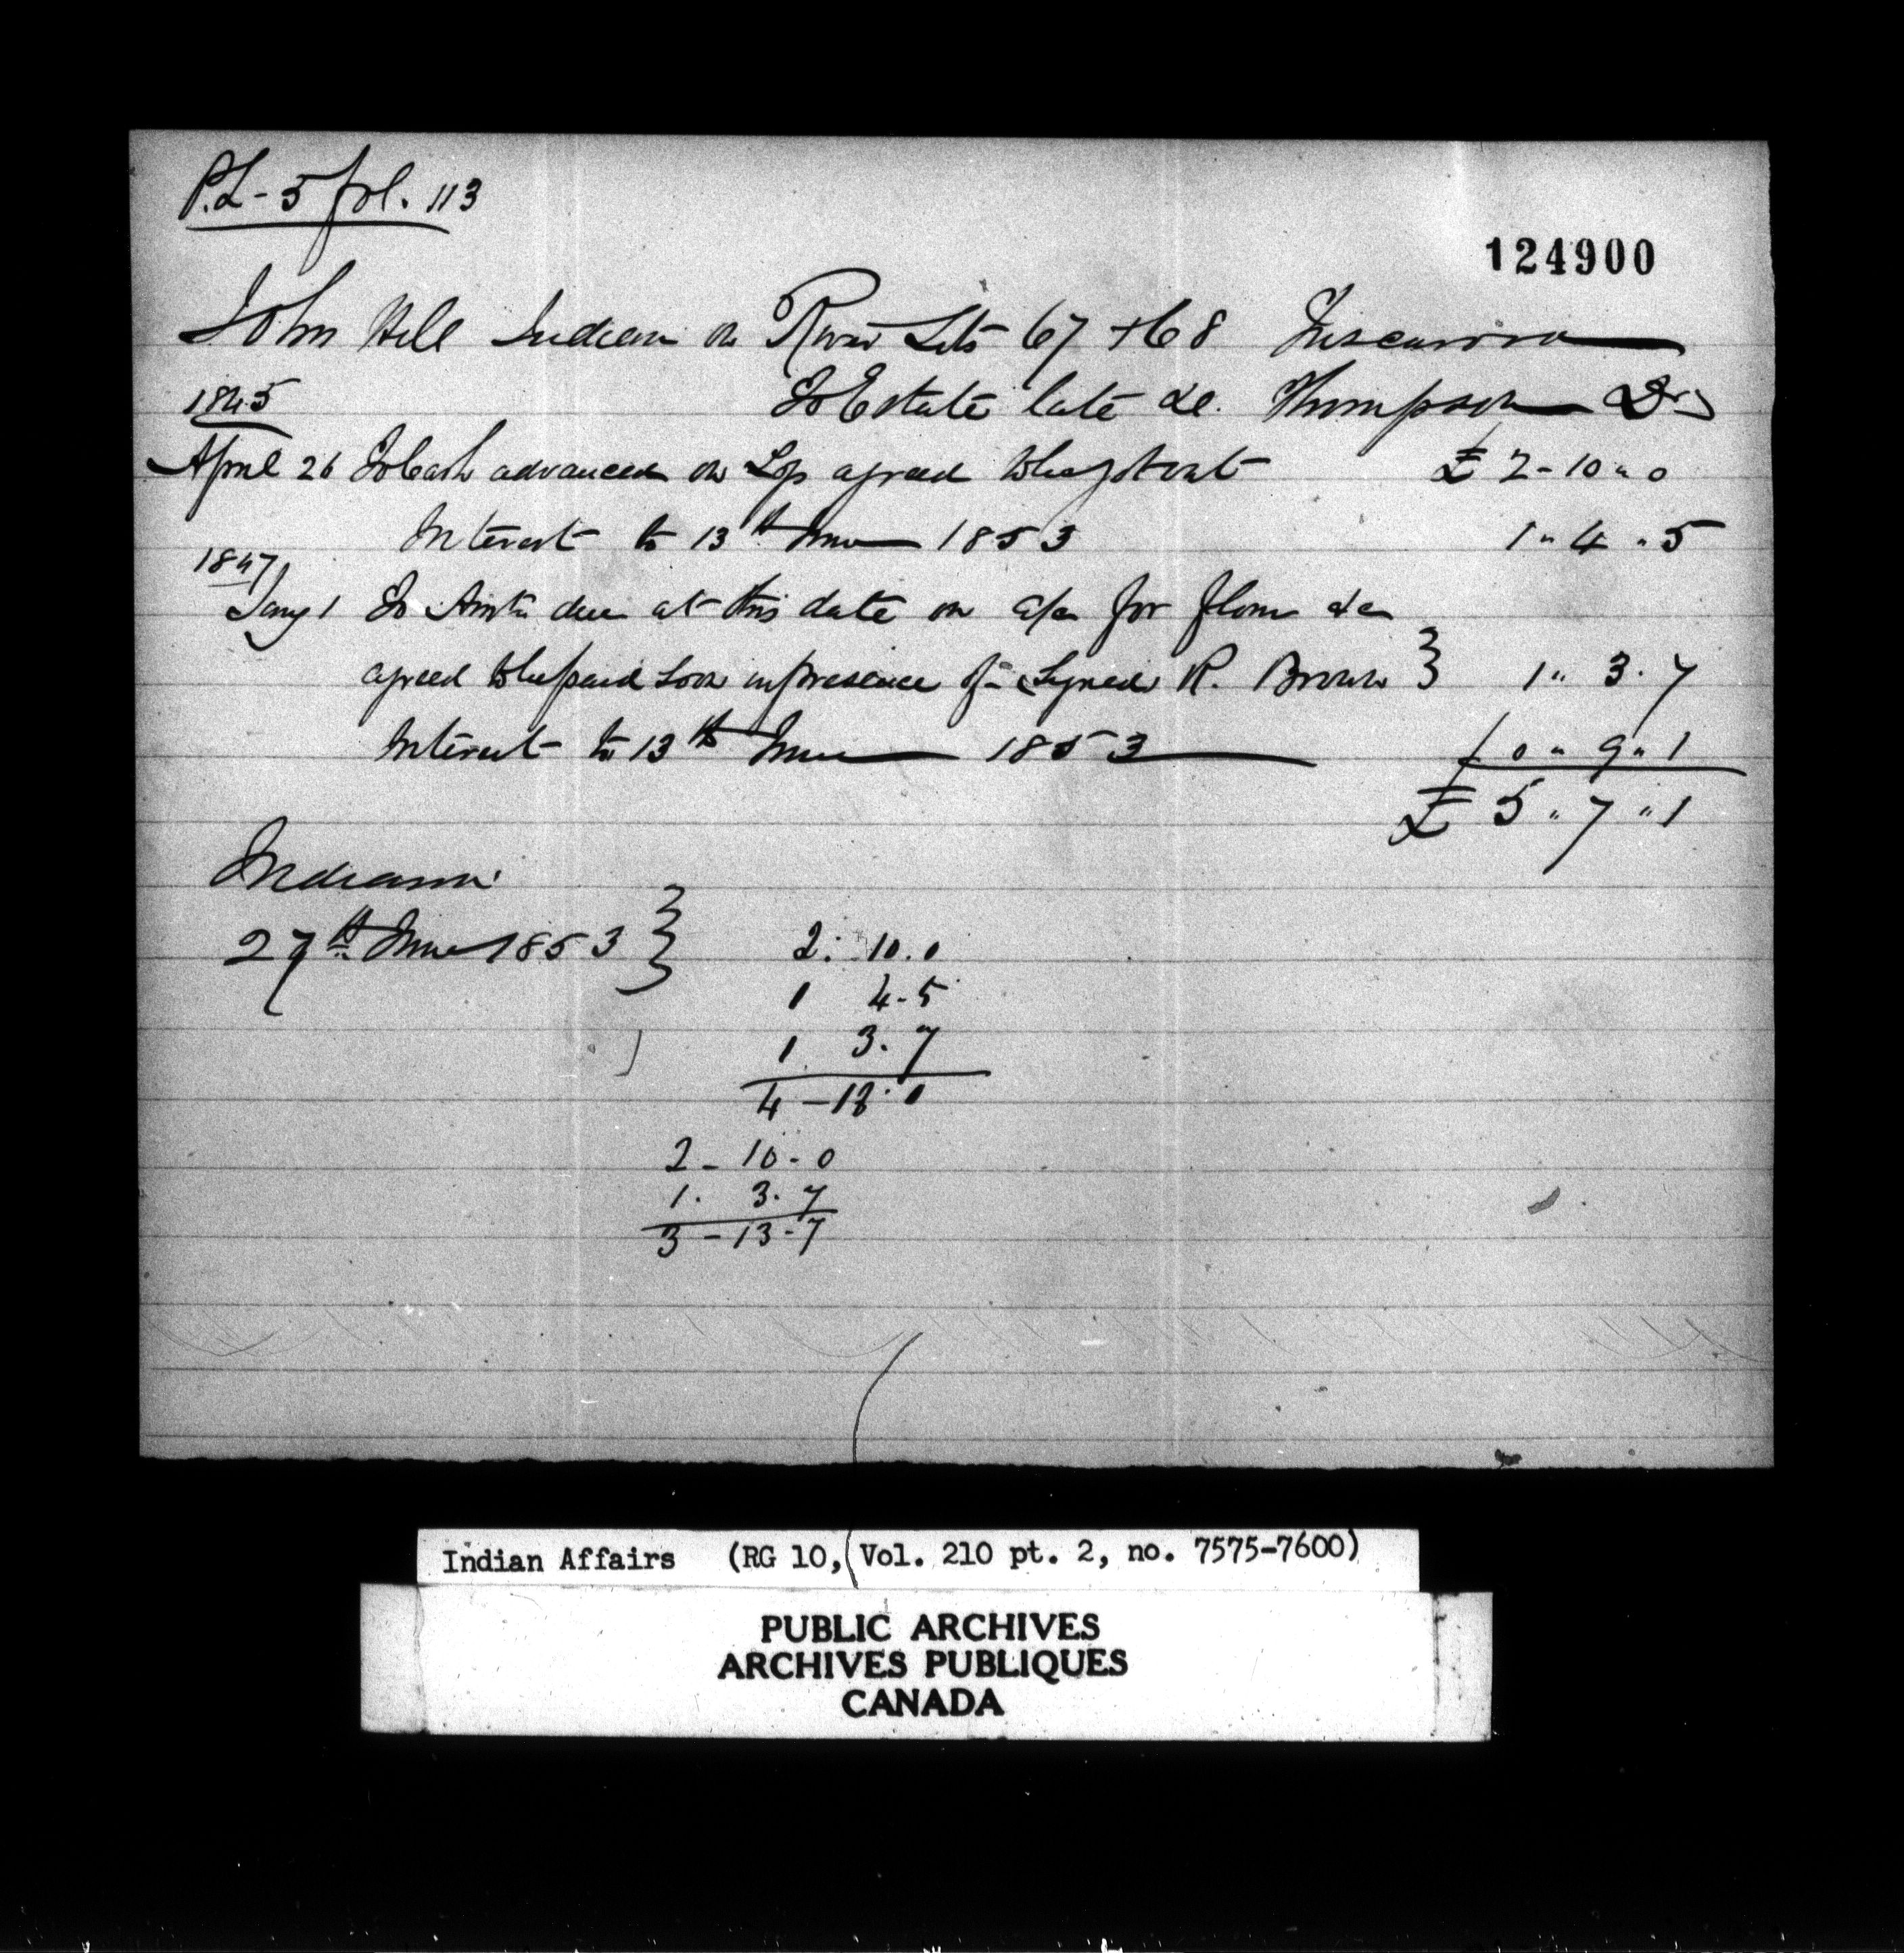 P.L - 5 fol. 113
124900
John Hill Indian on River Lots 67 + 68 Tuscarora
1845
To Estate late Thompson Dr
April 26 To Cash advanced on agreed £ 2 - 10 " 0
Interest to 13th June 1853 1 " 4 " 5
1847
Jany 1 To Amt due at this date on a/c for flour &c
agreed to be paid soon in presence of Signed R. Brown } 1 " 3 . 7
Interest to 13th June 1853 0 " 9 " 1
£ 5 " 7 " 1
Indiana
27th June 1853 }
2 : 10 . 0
1 4 - 5
1 3 . 7
4 - 18 . 0
2 - 10 - 0
1 . 3 . 7
3 - 13 - 7
Indian Affairs (RG 10, Vol. 210 pt. 2, no. 7575-7600)
PUBLIC ARCHIVES
ARCHIVES PUBLIQUES
CANADA